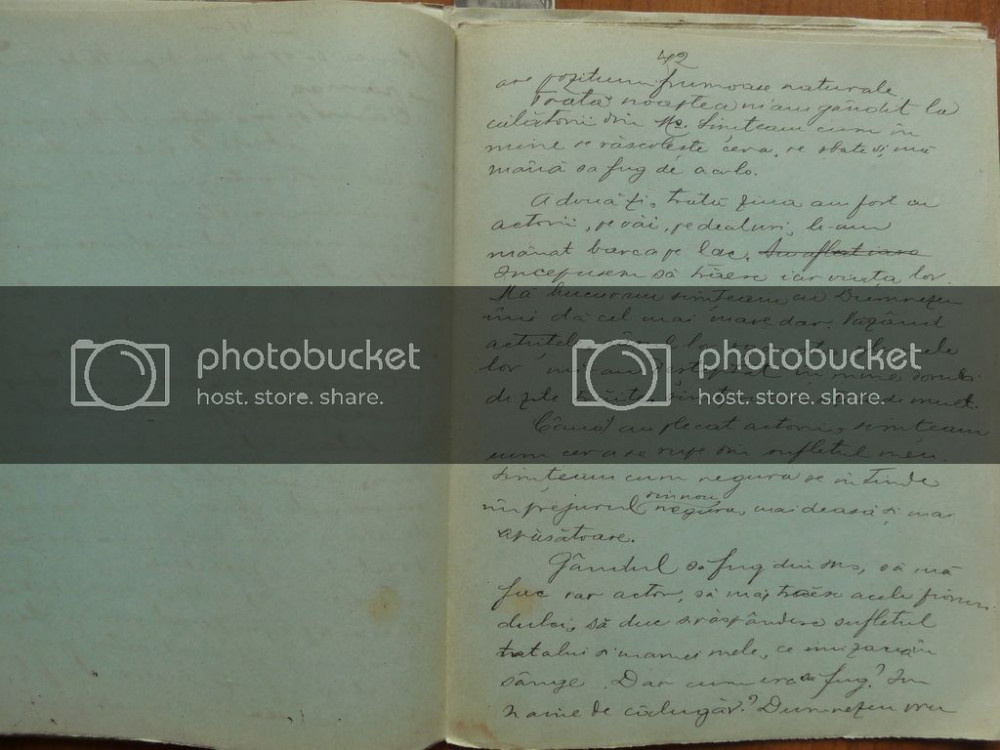 42
are pozițiuni frumoase naturale
Toată noaptea m'am gândit la
călătorii din Ms. Simțeam cum în
mine se răscolește ceva, se sbate și mă
mână să fug de acolo.
A doua zi, toată ziua am fost cu
actorii, pe văi, pe dealuri, le-am
mânat barca pe lac. Am aflat iara
Începusem să trăesc iar viața lor.
Mă bucuram simțeam cu Dumnezeu
îmi dă cel mai mare dar. Văzând
lor mi-au în mine dorul
de zile de mult.
photobucket
host. store. share.
photobucket
host. store. share.
Când au plecat actorii, simțeam
cum ceva se rupe din sufletul meu.
Simțeam cum negura se întinde
împrejurul din nou negura, mai deasă și mai
apăsătoare.
Gândul să fug din Ms, să mă
fac iar actor, să mai trăesc acele fioruri
dulci, să duc să răspândesc sufletul
tatalui și mamei mele, ce îmi zac în
sânge. Dar cum era să fug? In
haine de călugăr? Dumnezeu vru